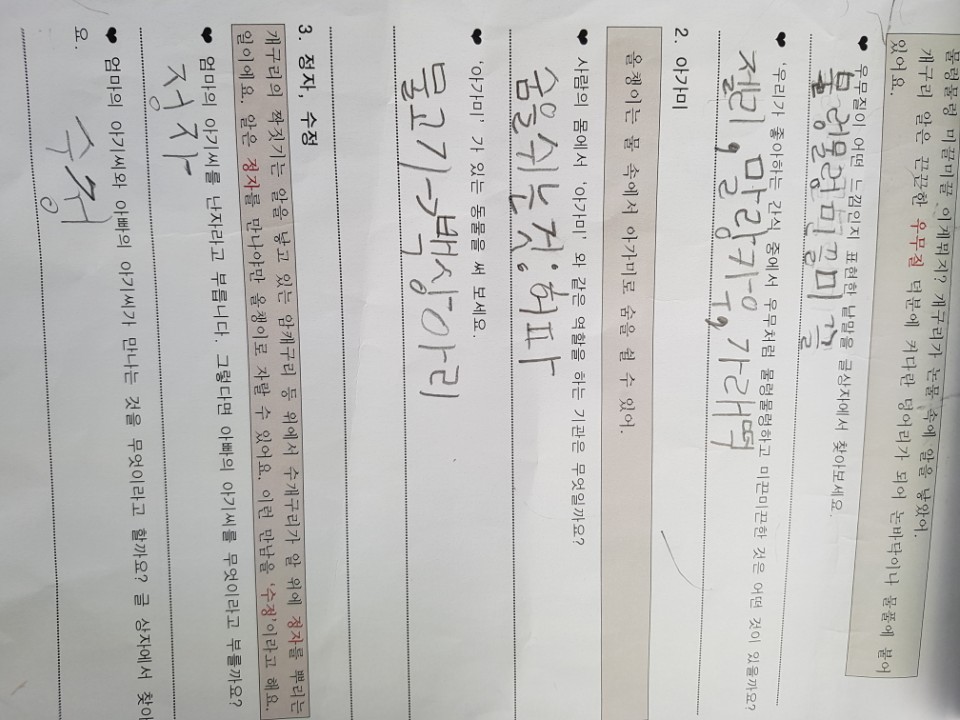 물렁물렁 미끌미끌 이게뭐지? 개구리가 논물 속에 알을 낳았어.
개구리 알은 끈끈한 우무질 덕분에 커다란 덩어리가 되어 논바닥이나 물풀에 붙어
있어요.
♥ 우무질이 어떤 느낌인지 표현한 낱말을 글상자에서 찾아보세요.
물렁물렁미끌미끌
♥ '우리가 좋아하는 간식 중에서 우무처럼 물렁물렁하고 미끈미끈한 것은 어떤 것이 있을까요?
젤리, 말랑카우, 가래떡
2. 아가미
올챙이는 물 속에서 아가미로 숨을 쉴 수 있어.
♥ 사람의 몸에서 '아가미' 와 같은 역할을 하는 기관은 무엇일까요?
숨을쉬는것:허파
♥ '아가미' 가 있는 동물을 써 보세요.
물고기→백상아리
3. 정자, 수정
개구리의 짝짓기는 알을 낳고 있는 암개구리 등 위에서 수개구리가 알 위에 정자를 뿌리는
일이에요. 알은 정자를 만나야만 올챙이로 자랄 수 있어요. 이런 만남을 '수정'이라고 해요.
♥ 엄마의 아기씨를 난자라고 부릅니다. 그렇다면 아빠의 아기씨를 무엇이라고 부를까요?
정자
♥ 엄마의 아기씨와 아빠의 아기씨가 만나는 것을 무엇이라고 할까요? 글 상자에서 찾아
요.
수정